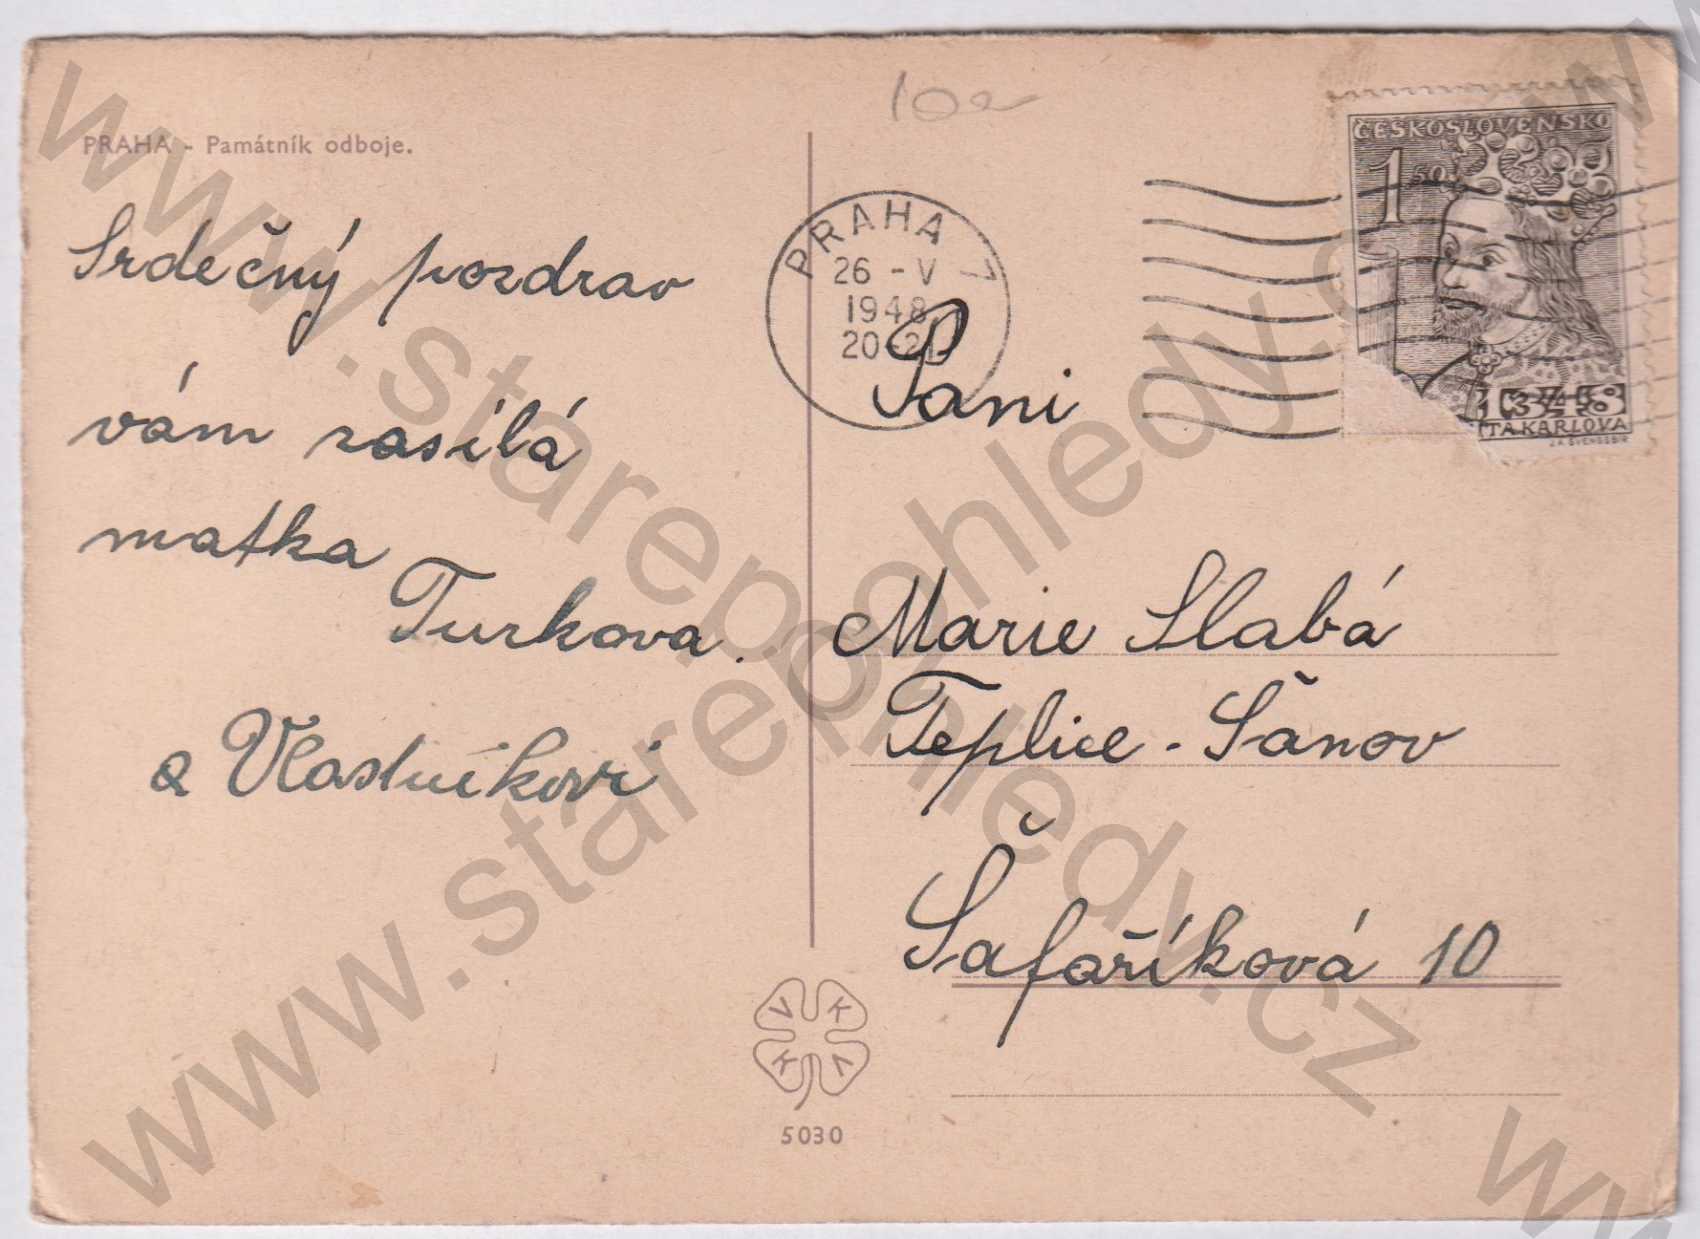 PRAHA - Památník odboje.
Srdečný pozdrav
vám zasílá
matka
Turkova.
a Vlastníkovi
10a
PRAHA 7
26 - V
1948
20-21
ČESKOSLOVENSKO
1 50
1348
TA KARLOVA
Paní
Marie Slabá
Teplice - Šanov
Šafaříková 10
V K
K V
5030
www.starepohledy.cz
www.starepohledy.cz